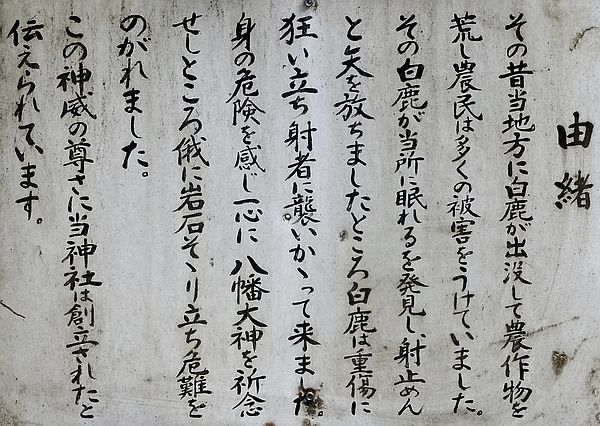 由緒
その昔当地方に白鹿が出没して農作物を
荒し農民は多くの被害をうけていました。
その白鹿が当所に眠れるを発見し、射止めん
と矢を放ちましたところ白鹿は重傷に
狂い立ち射者に襲いかゝって来ました。
身の危険を感じ一心に八幡大神を祈念
せしところ俄に岩石そゝり立ち危難を
のがれました。
この神威の尊さに当神社は創立されたと
伝えられています。